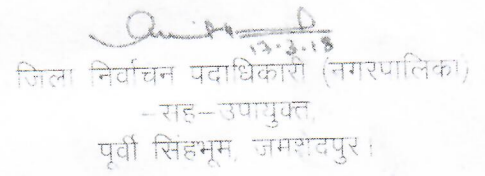 17.3.18
जिला निर्वाचन पदाधिकारी (नगरपालिका)
-सह-उपायुक्त,
पूर्वी सिंहभूम, जमशेदपुर।